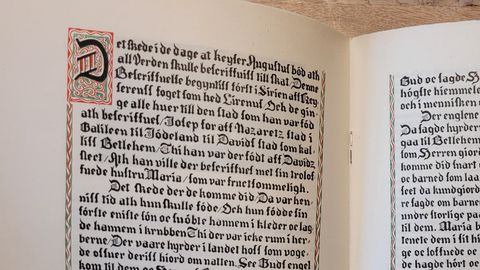 Det skede i de dage at keyser Augustus bød ath
all Verden skulle beschriffuiss till skat. Denne
Beschriffuelse begyntiss först i Sirien aff Key-
serenss foget som hed Cirenus. Och de gin-
ge alle huer till den stad som han var född
ath beschriffues/ Josep for aff Nazaretz stad i
Galileen til Jödeland til Davidz stad som kal-
liss Betlehem/ Thi han ver der födt aff Davidz
sleet/ Ath han ville der beschriffues met sin trolof-
fuede hustru Maria/ som var fructsommeligh.
Det skede der de komme did/ Da var hen-
niss tid ath hun skulle föde/ Och hun födde sin
förste eniste sön oc suöbte hannem i kleder oc lag-
de hannem i krubben Thi der var icke rum i her-
berne/ Der vaare hyrder i landet hoss som voge-
de offuer siin hiord om natten. See Gudz engel
kom til dem oc
Gud oc sagde/ H
högste hiemmele
och mennisken
Der englene
Da sagde hyrder
gaa til Betlehem
som Herren giord
komme did snart
oc barned som laa
da kundgiord
under storlige paa
til dem. Maria b
tencte dem i sit hi
igen oc sagde
de hagde hört oc